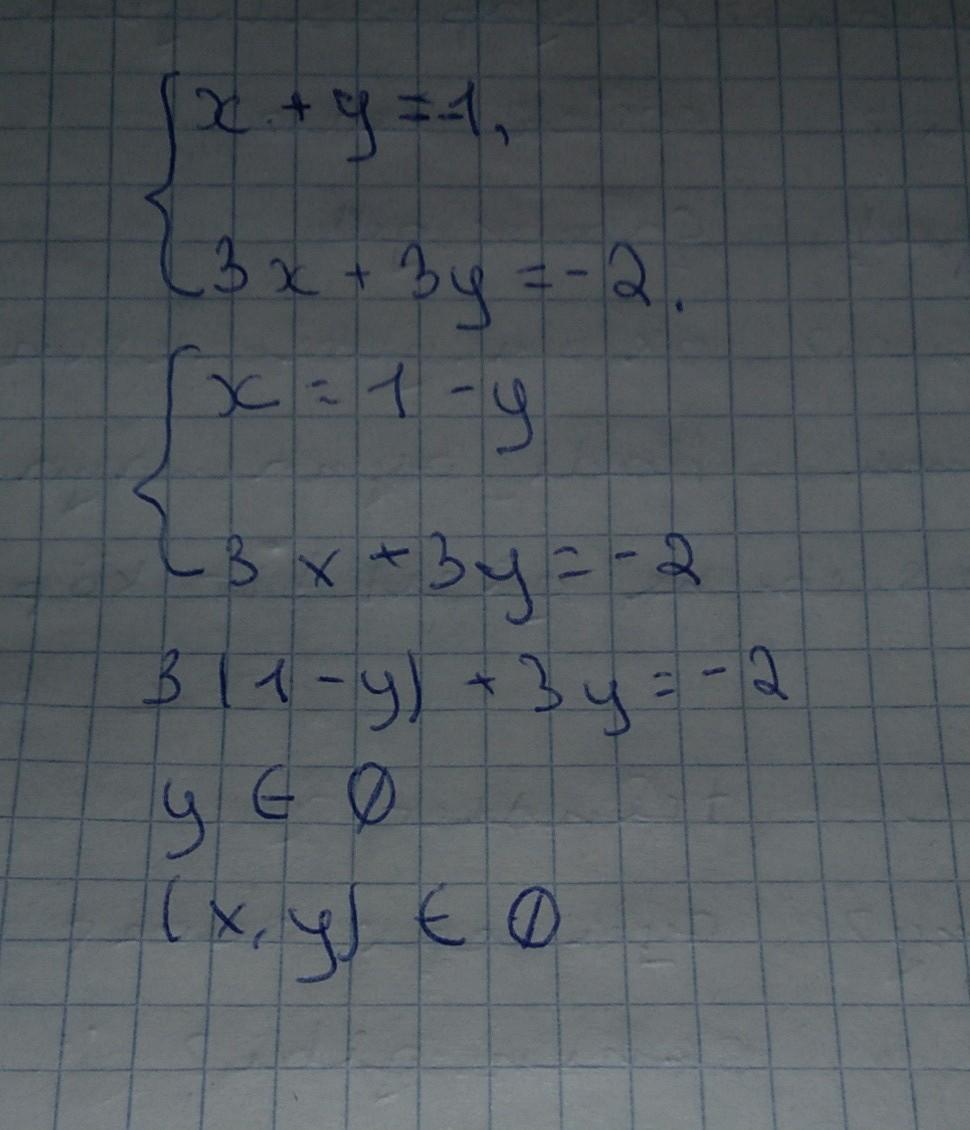 { x + y = 1,
3x + 3y = -2.
{ x = 1 - y
3x + 3y = -2
3(1 - y) + 3y = -2
y ∈ ∅
(x, y) ∈ ∅